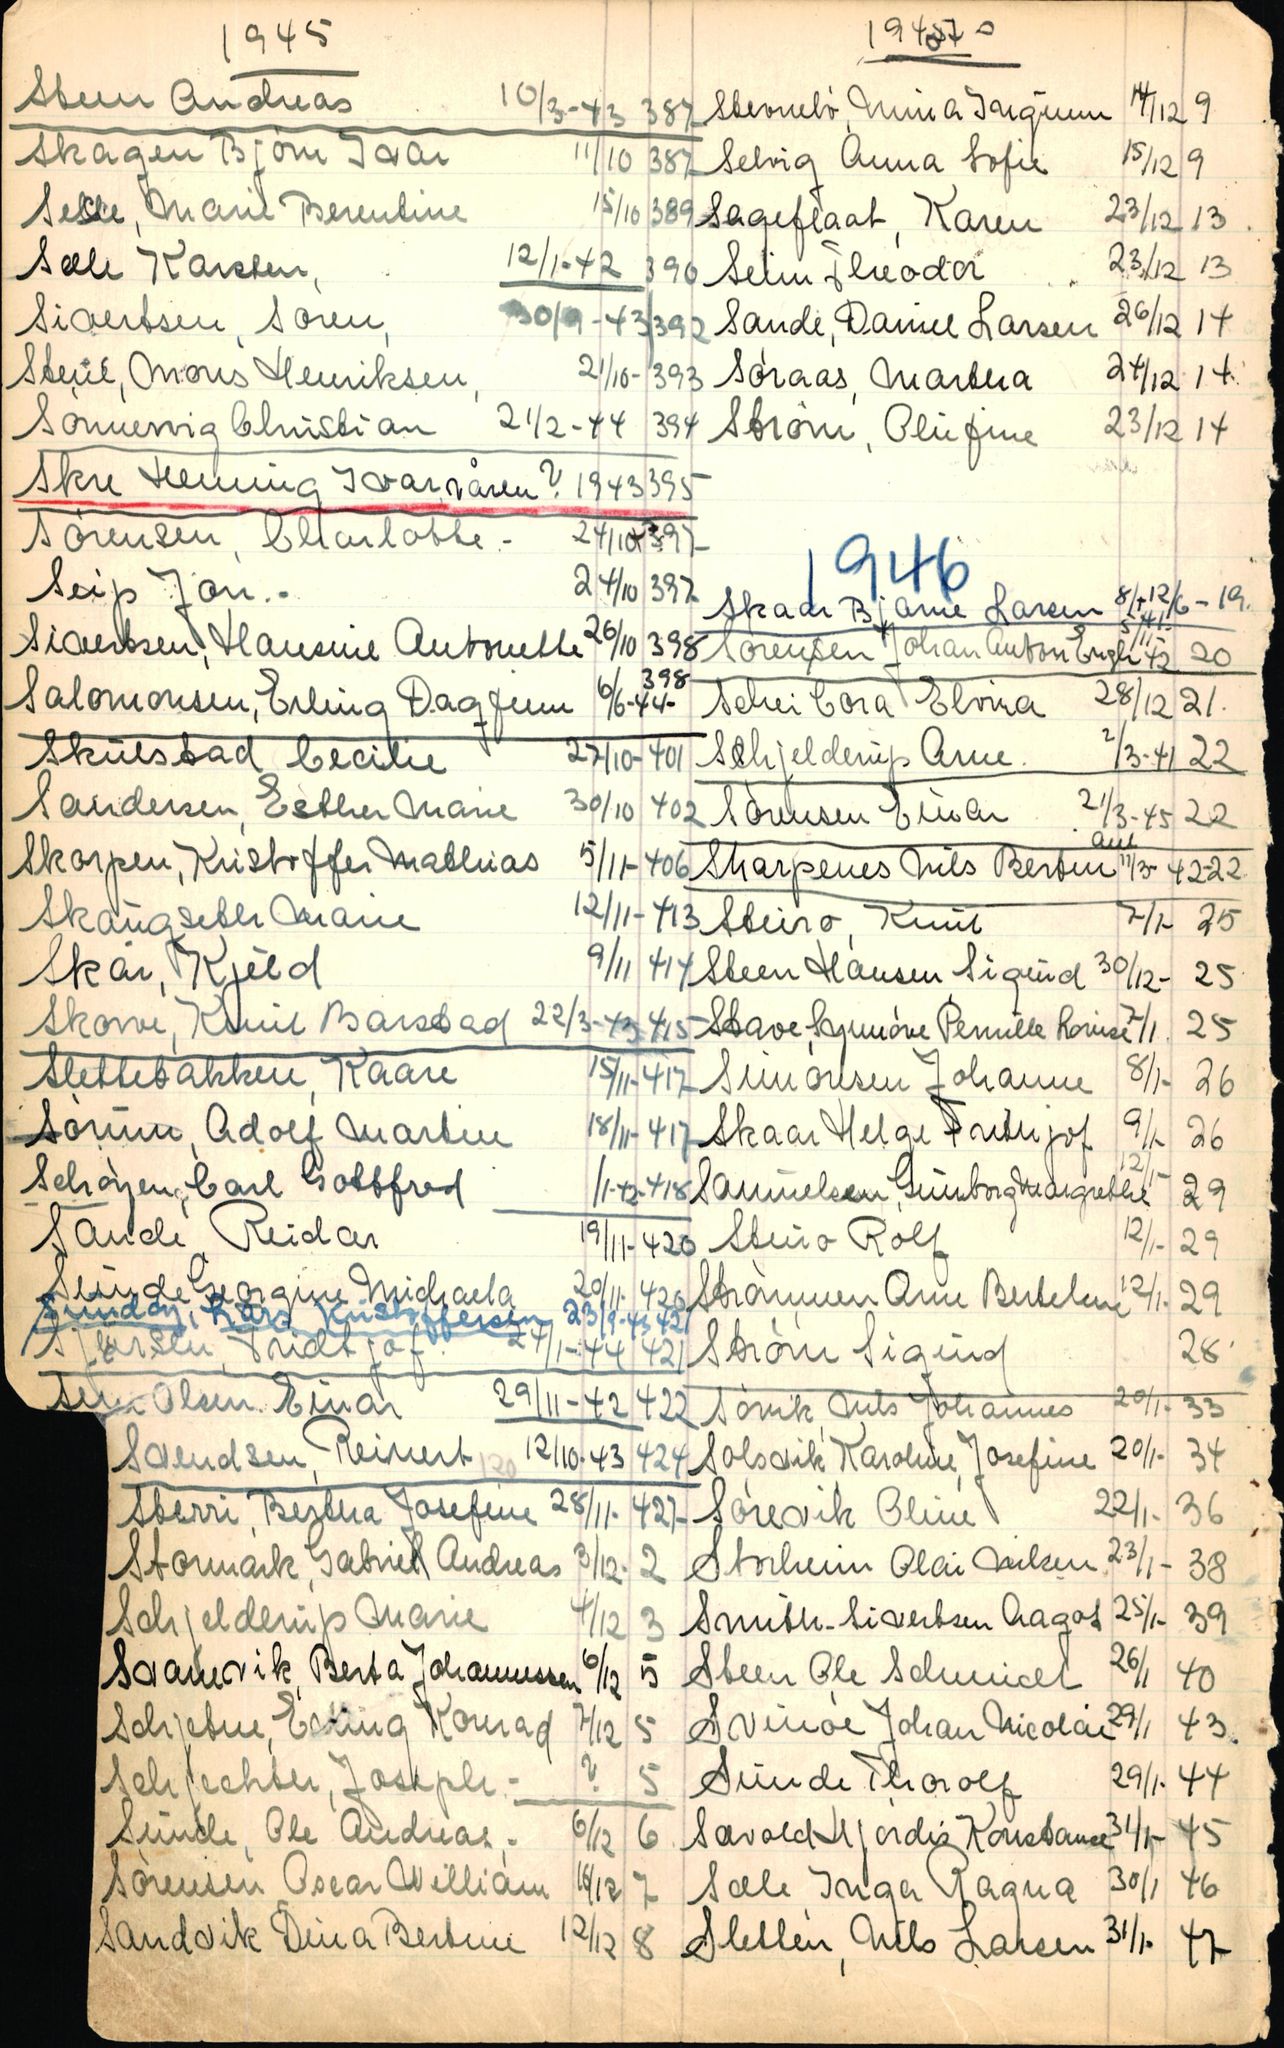 1945
Steen Andreas 10/3-43 387
Skagen Björn Ivar 11/10 387
Selle, Marie Berentine 15/10 389
Sæle Karsten, 12/1-42 390
Sivertsen, Sören, 30/9-43 392
Mons Henriksen, 21/10- 393
Sönnervig Christian 21/2-44 394
Skre Henning Ivar, våren? 1943 395
Sörensen, Charlotte - 24/10 397
Seip Jön.- 24/10 397
Sivertsen, Hansine Antonette 26/10 398
Salomonsen, Erling Dagfinn 6/6-44- 398
Skulstad Cecilie 27/10- 401
Sandersen, Esther Marie 30/10 402
Skorpen, Kristoffer Mathias 5/11- 406
Skaugseth Marie 12/11- 413
Skår, Kjell 9/11 414
Skorve, Knut Barstad 22/3-43- 415
Slettebakken, Kaare 15/11- 417
Sörum, Adolf Martin 18/11- 417
Schöyen, Carl Gottfred 1/1-42- 418
Sande, Reidar 19/11- 420
Sunde Georgine Michaela 20/11- 420
Sunday, Lars Kristoffersen 23/9-43 421
Fridtjof 24/1-44 421
Olsen Einar 29/11-42 422
Svendsen, Reinert 12/10-43 424
Sterri, Bertha Josefine 28/11- 427
Stormark, Gabriel Andreas 3/12- 2
Schjelderup Marie 4/12 3
Svanevik, Berta Johannessen 6/12 5
Schjetne, Erling Konrad 7/12 5
Schjechter, Joseph - ? 5
Sunde, Ole Andreas, - 6/12 6
Sörensen Oscar William 10/12 7
Sandvik Dina Bertine 12/12 8
1945
Nina Ingunn 14/12 9
Selvig Anna Sofie 15/12 9
Sageflaat, Karen 23/12 13
Seim Theodor 23/12 13
Sande, Daniel Larsen 26/12 14
Söraas, Martha 24/12 14
Ström, Olufine 23/12 14
1946
Skaar Bjarne Larsen 19
Sörensen Johan Anton 42 20
Schei Cora Elvira 28/12 21.
Schjelderup Arne. 2/3-41 22
Sörensen Einar 21/3-45 22
Skarpenes Nils Bertin 11/3- 42-22
Steiro, Knut 7/1- 25
Steen Hansen, Sigurd 30/12- 25
Stave, Synnöve Pernille Lovise 7/1. 25
Simonsen Johanne 8/1- 26
Skaar Helge Fritjof 9/1- 26
Samuelsen, Gunborg Margrethe 12/1- 29
Steiro Rolf 12/1- 29
Strömmen Arne Berteleine 12/1- 29
Ström Sigurd 28
Sörvik, Nils Johannes 20/1- 33
Solsvik Karoline, Josefine 20/1- 34
Sörevik Oline 22/1- 36
Storheim Olai Nilsen 23/1- 38
Smith-Sivertsen Aagot 25/1- 39
Steen Ole Schmidt 26/1 40
Svinöe Johan Nicolai 29/1 43.
Sunde Thorolf 29/1- 44
Sævold Hjördis Konstance 31/1- 45
Sæle Inga Ragna 30/1 46
Sletten, Nils Larsen 31/1- 47